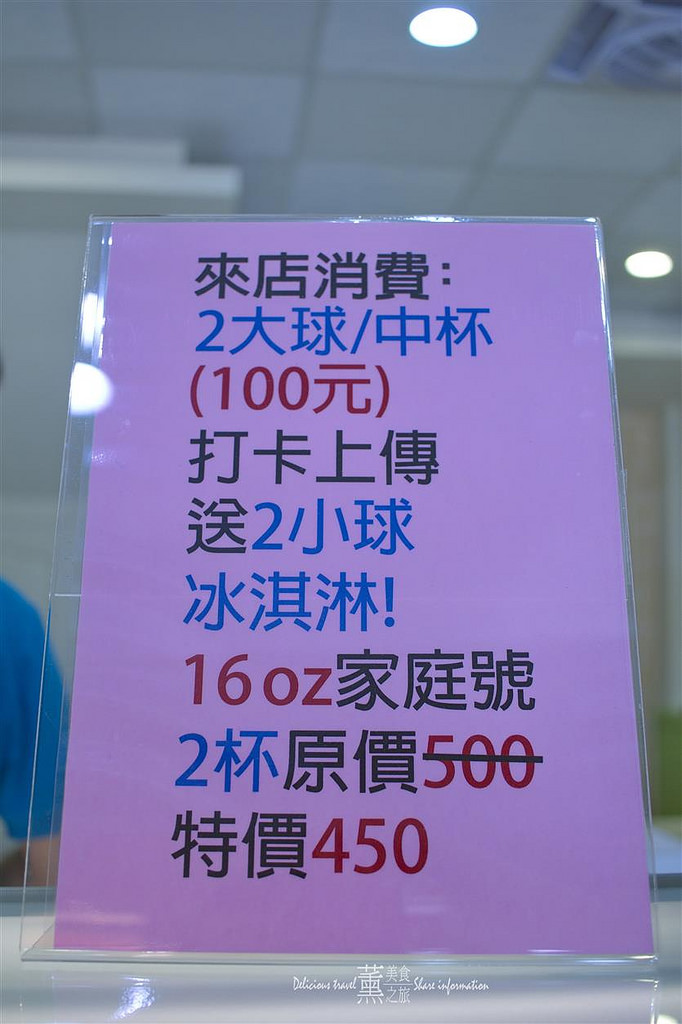 來店消費:
2大球/中杯
(100元)
打卡上傳
送2小球
冰淇淋!
16 oz家庭號
2杯原價500
特價450
Delicious travel 薰 美食之旅 Share information